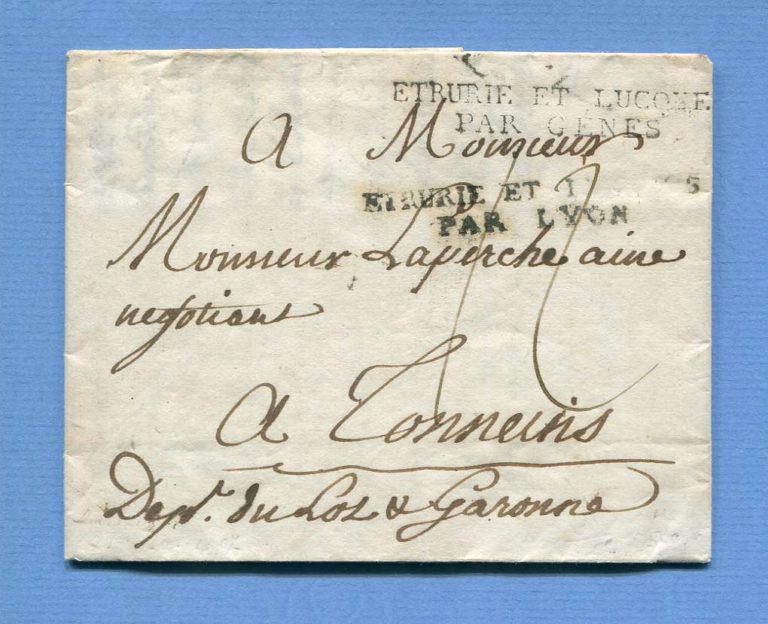 ETRURIE ET LUCQUE
PAR GENES
A Monsieur
ETRURIE ET
PAR LYON
Monsieur Laperche ainé
negotiant
A Tonneins
Dept. du Lot & Garonne